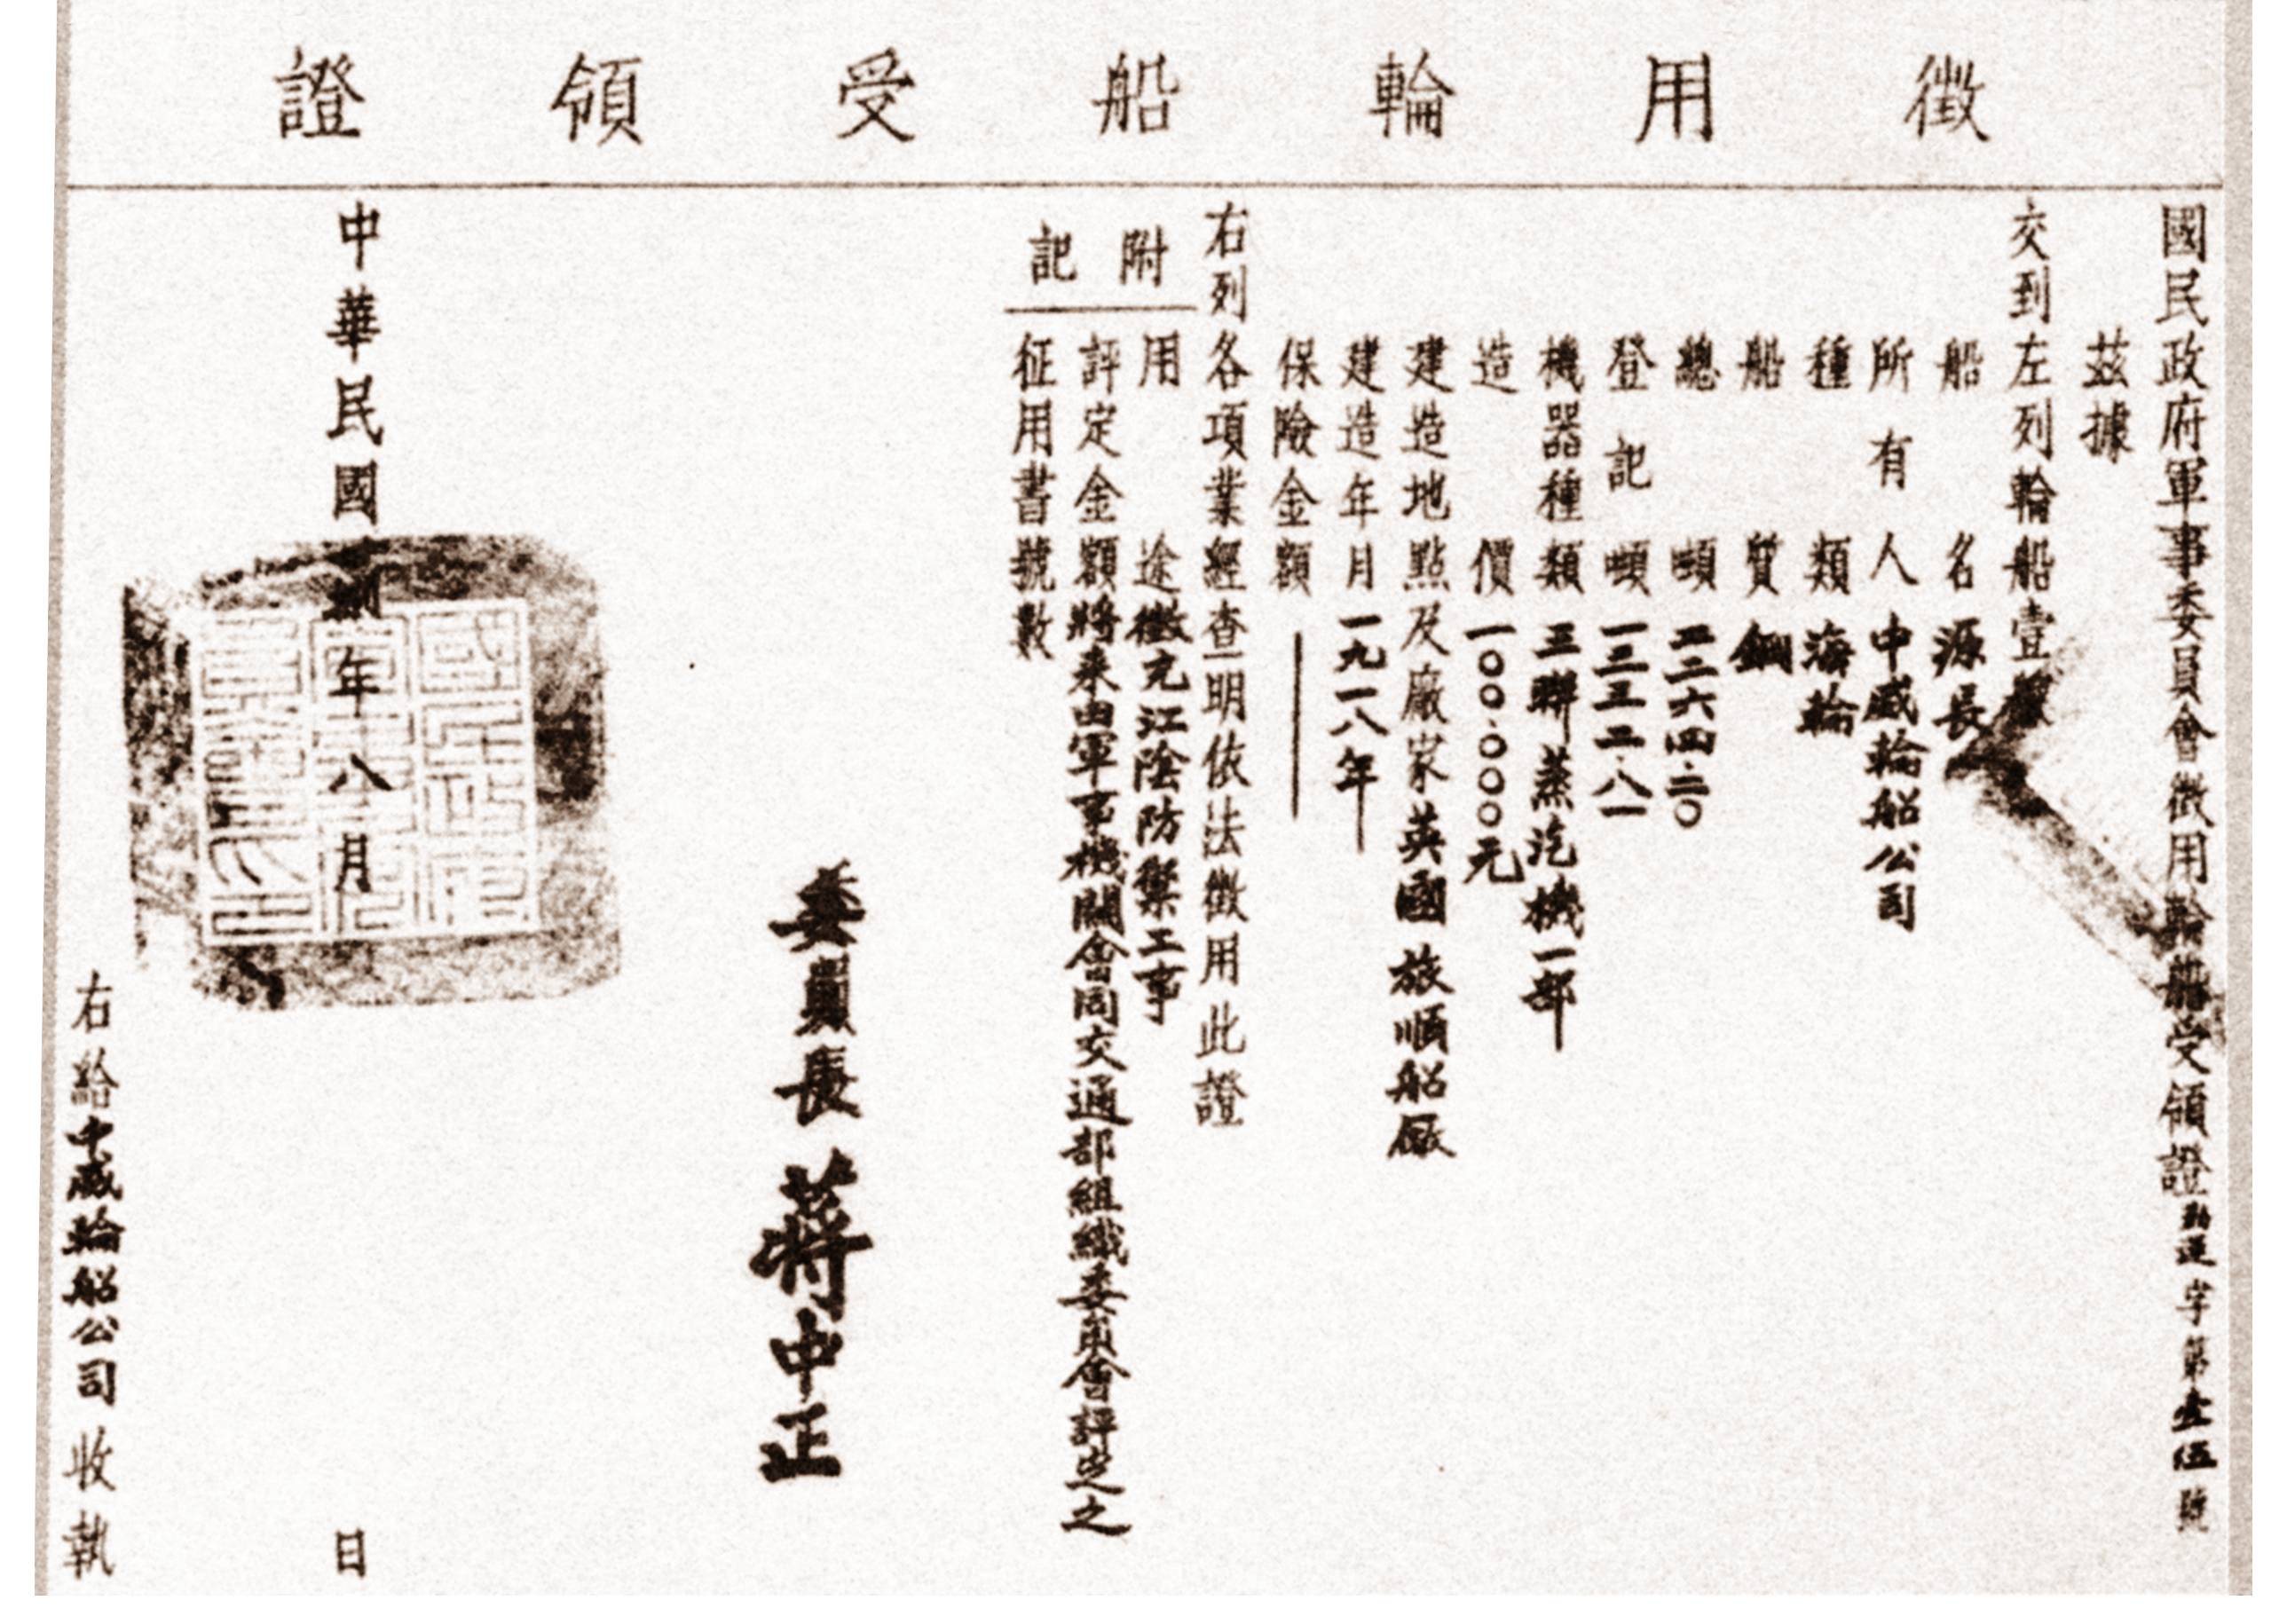 徵用輪船受領證
國民政府軍事委員會徵用輪船受領證 運字第壹伍號
茲據
交到左列輪船壹艘
船名 源長
所有人 中威輪船公司
種類 海輪
船質 鋼
總噸 二二六四.二〇
登記噸 一三三二.八一
機器種類 三聯蒸汽機一部
造價 一〇〇.〇〇〇元
建造地點及廠家 英國旅順船廠
建造年月 一九一八年
保險金額
右列各項業經查明依法徵用此證
附記
用途 徵充江陰防禦工事
評定金額 將來由軍事機關會同交通部組織委員會評定之
征用書號數
委員長 蔣中正
中華民國 年八月 日
右給中威輪船公司收執